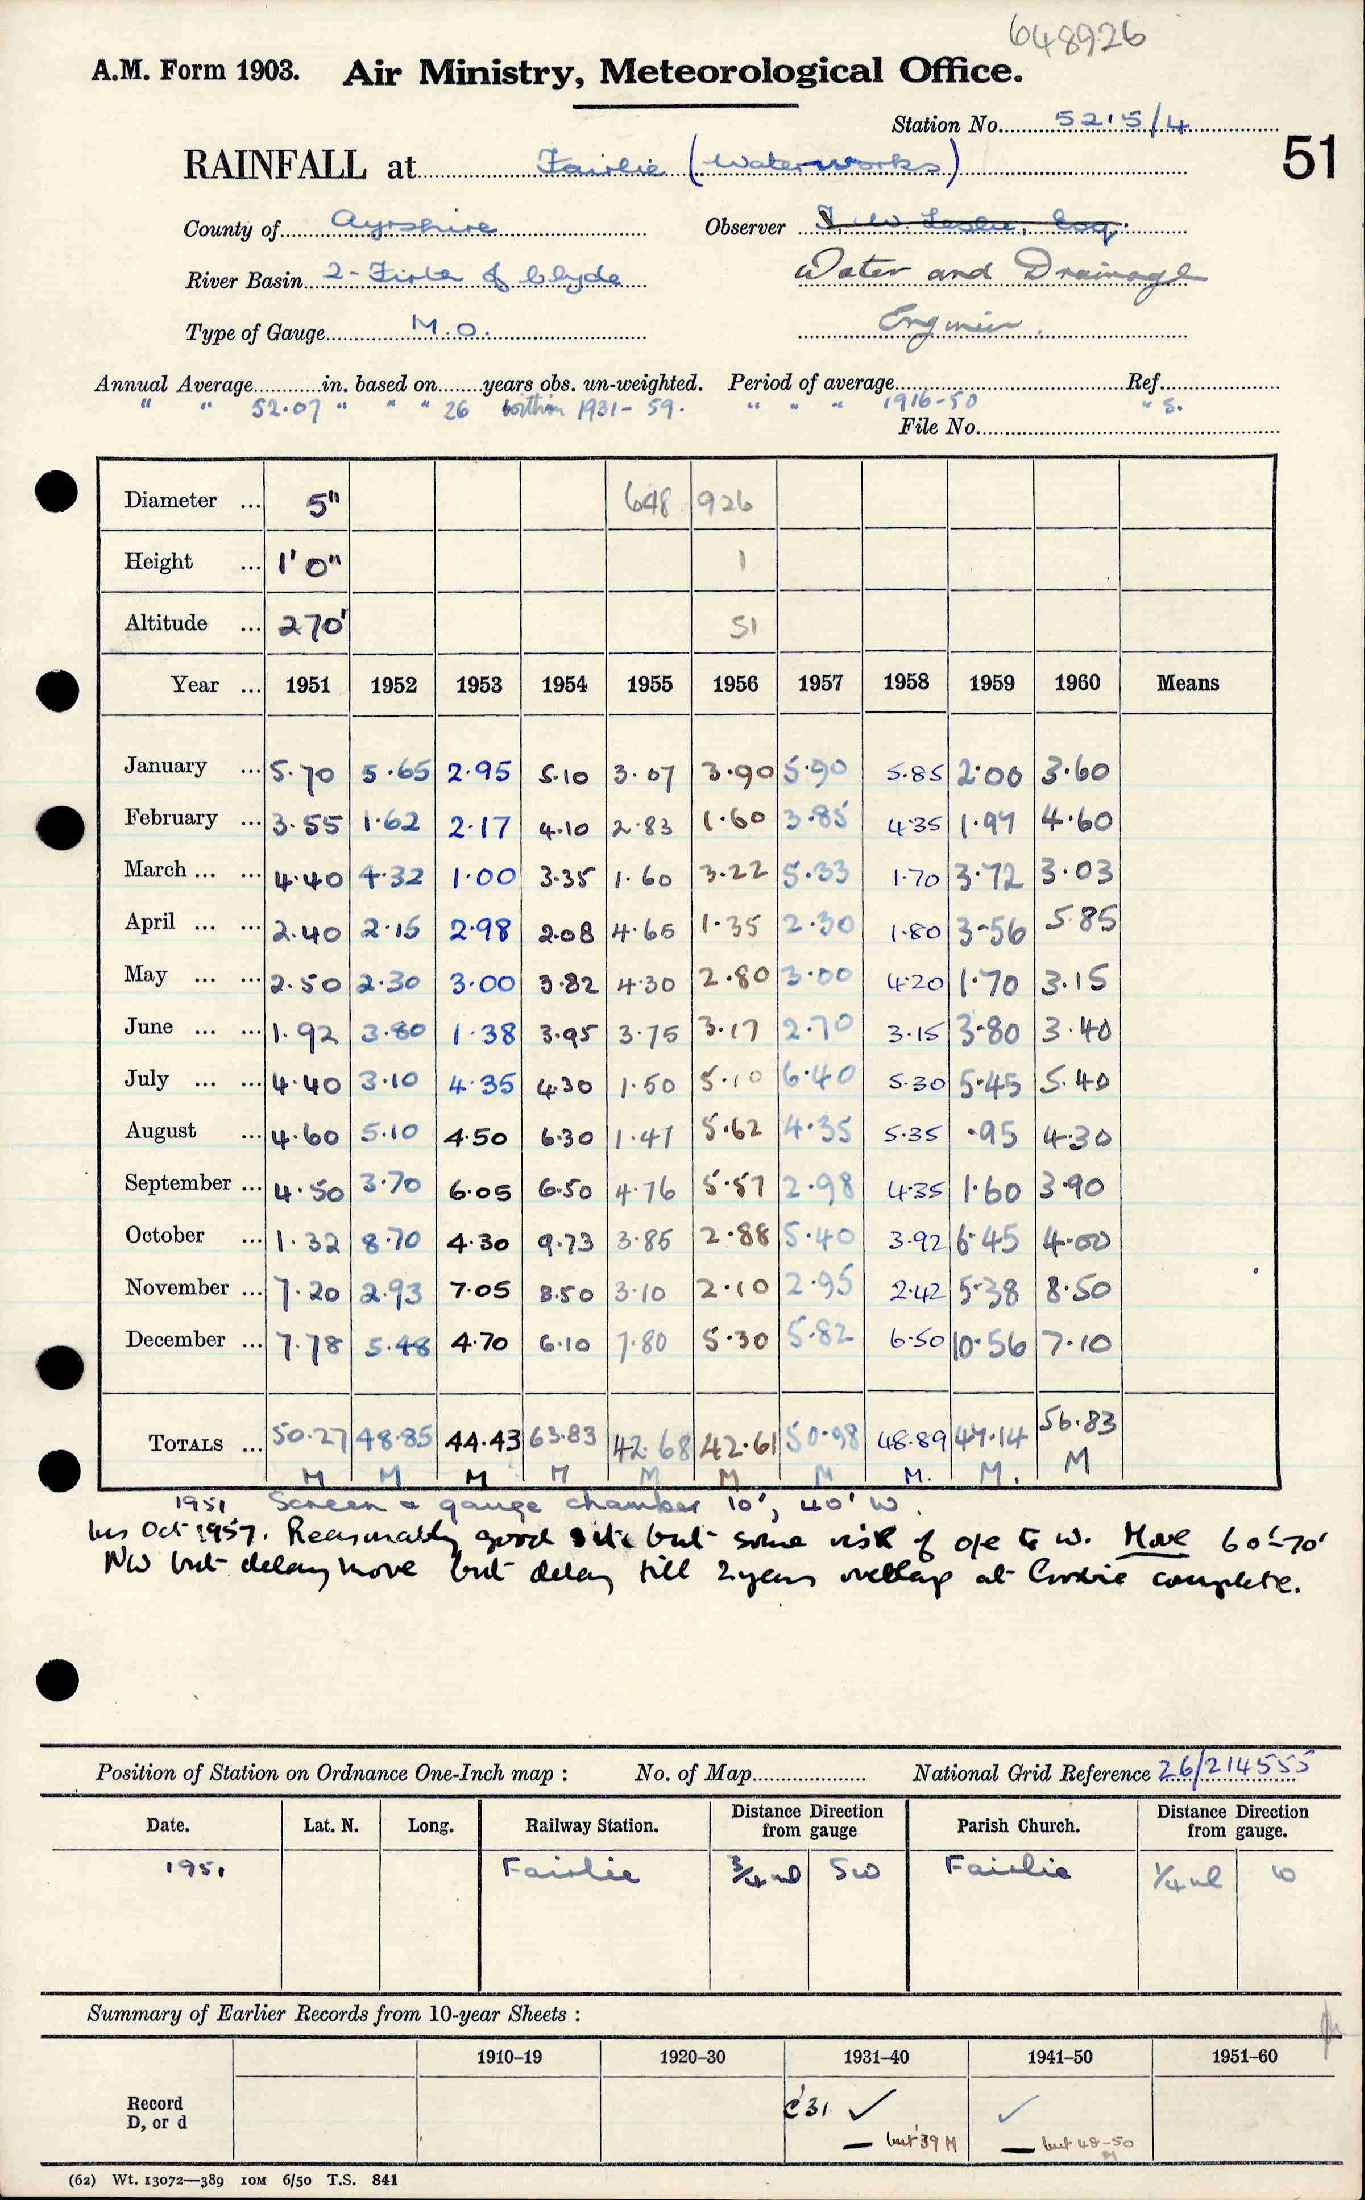 648926
A.M. Form 1903. Air Ministry, Meteorological Office.
Station No. 5215/4
51
RAINFALL at Fairlie (Waterworks)
County of Ayrshire Observer J. W. Leslie, Esq.
River Basin 2-Firth of Clyde Water and Drainage
Type of Gauge M.O. Engineer.
Annual Average in. based on years obs. un-weighted. Period of average Ref.
" " 52.07 " " " 26 within 1931-59. " " " 1916-50 " S.
File No.
Diameter ... 5" 648 926
Height ... 1'0" 1
Altitude ... 270' 51
Year ... 1951 1952 1953 1954 1955 1956 1957 1958 1959 1960 Means
January ... 5.70 5.65 2.95 5.10 3.07 3.90 5.90 5.85 2.00 3.60
February ... 3.55 1.62 2.17 4.10 2.83 1.60 3.85 4.35 1.97 4.60
March ... ... 4.40 4.32 1.00 3.35 1.60 3.22 5.33 1.70 3.72 3.03
April ... ... 2.40 2.15 2.98 2.08 4.65 1.35 2.30 1.80 3.56 5.85
May ... ... 2.50 2.30 3.00 3.82 4.30 2.80 3.00 4.20 1.70 3.15
June ... ... 1.92 3.80 1.38 3.95 3.75 3.17 2.70 3.15 3.80 3.40
July ... ... 4.40 3.10 4.35 4.30 1.50 5.10 6.40 5.30 5.45 5.40
August ... 4.60 5.10 4.50 6.30 1.47 5.62 4.35 5.35 .95 4.30
September ... 4.50 3.70 6.05 6.50 4.76 5.57 2.98 4.35 1.60 3.90
October ... 1.32 8.70 4.30 9.73 3.85 2.88 5.40 3.92 6.45 4.00
November ... 7.20 2.93 7.05 8.50 3.10 2.10 2.95 2.42 5.38 8.50
December ... 7.78 5.48 4.70 6.10 7.80 5.30 5.82 6.50 10.56 7.10
TOTALS ... 50.27 48.85 44.43 63.83 42.68 42.61 50.98 48.89 47.14 56.83
M M M M M M M M. M. M
1951 Screen & gauge chamber 10', 40' W.
Ins Oct 1957. Reasonably good site but some risk of o/e to W. Move 60'-70'
NW but delay move but delay till 2 years overlap at complete.
Position of Station on Ordnance One-Inch map : No. of Map National Grid Reference 26/214555
Date. Lat. N. Long. Railway Station. Distance Direction from gauge Parish Church. Distance Direction from gauge.
1951 Fairlie 3/4 ml SW Fairlie 1/4 ml W
Summary of Earlier Records from 10-year Sheets :
1910–19 1920–30 1931–40 1941–50 1951–60
Record D, or d c'31 ✓ ✓
— but '39 M — but 48-50 M
(62) Wt. 13072—389 10M 6/50 T.S. 841